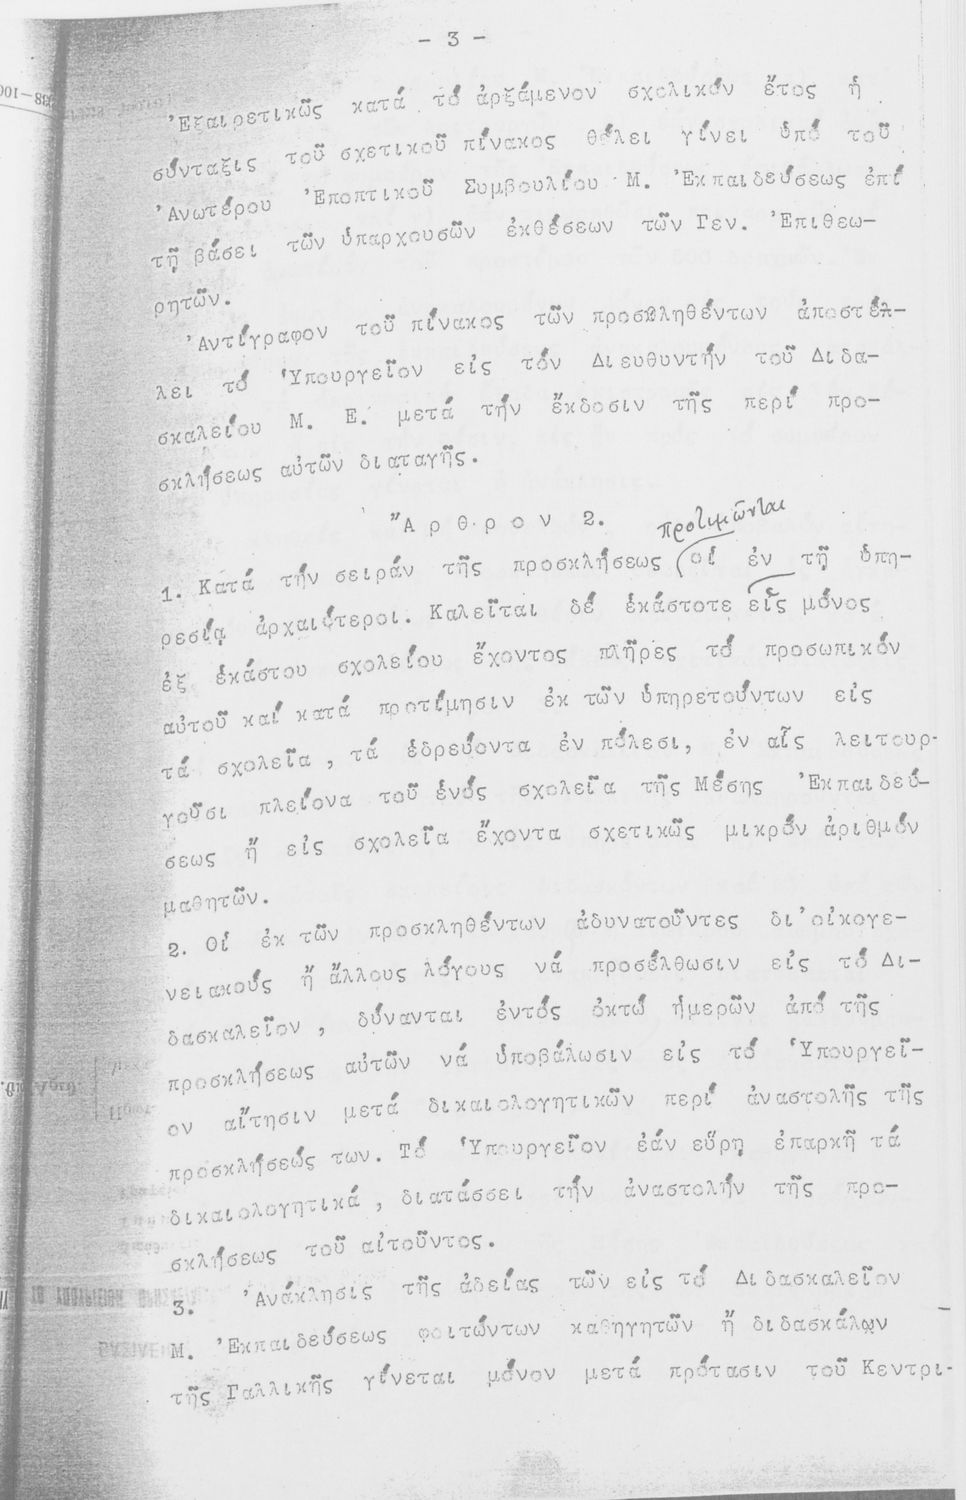 - 3 -
Ἐξαιρετικῶς κατά τό ἀρξάμενον σχολικόν ἔτος ἡ
σύνταξις τοῦ σχετικοῦ πίνακος θέλει γίνει ὑπό τοῦ
Ἀνωτέρου Ἐποπτικοῦ Συμβουλίου Μ. Ἐκπαιδεύσεως ἐπί
τῇ βάσει τῶν ὑπαρχουσῶν ἐκθέσεων τῶν Γεν. Ἐπιθεω-
ρητῶν.
Ἀντίγραφον τοῦ πίνακος τῶν προσβληθέντων ἀποστέλ-
λει τό Ὑπουργεῖον εἰς τόν Διευθυντήν τοῦ Διδα-
σκαλείου Μ. Ε. μετά τήν ἔκδοσιν τῆς περί προ-
σκλήσεως αὐτῶν διαταγῆς.
Ἄρθρον 2.
προτιμῶνται
1. Κατά τήν σειράν τῆς προσκλήσεως οἱ ἐν τῇ ὑπη-
ρεσίᾳ ἀρχαιότεροι. Καλεῖται δέ ἑκάστοτε εἷς μόνος
ἐξ ἑκάστου σχολείου ἔχοντος πλῆρες τό προσωπικόν
αὐτοῦ καί κατά προτίμησιν ἐκ τῶν ὑπηρετούντων εἰς
τά σχολεῖα, τά ἑδρεύοντα ἐν πόλεσι, ἐν αἷς λειτουρ-
γοῦσι πλείονα τοῦ ἑνός σχολεῖα τῆς Μέσης Ἐκπαιδεύ-
σεως ἤ εἰς σχολεῖα ἔχοντα σχετικῶς μικρόν ἀριθμόν
μαθητῶν.
2. Οἱ ἐκ τῶν προσκληθέντων ἀδυνατοῦντες δι'οἰκογε-
νειακούς ἤ ἄλλους λόγους νά προσέλθωσιν εἰς τό Δι-
δασκαλεῖον, δύνανται ἐντός ὀκτώ ἡμερῶν ἀπό τῆς
προσκλήσεως αὐτῶν νά ὑποβάλωσιν εἰς τό Ὑπουργεῖ-
ον αἴτησιν μετά δικαιολογητικῶν περί ἀναστολῆς τῆς
προσκλήσεώς των. Τό Ὑπουργεῖον ἐάν εὕρῃ ἐπαρκῆ τά
δικαιολογητικά, διατάσσει τήν ἀναστολήν τῆς προ-
σκλήσεως τοῦ αἰτοῦντος.
3. Ἀνάκλησις τῆς ἀδείας τῶν εἰς τό Διδασκαλεῖον
Μ. Ἐκπαιδεύσεως φοιτώντων καθηγητῶν ἤ διδασκάλων
τῆς Γαλλικῆς γίνεται μόνον μετά πρότασιν τοῦ Κεντρι-